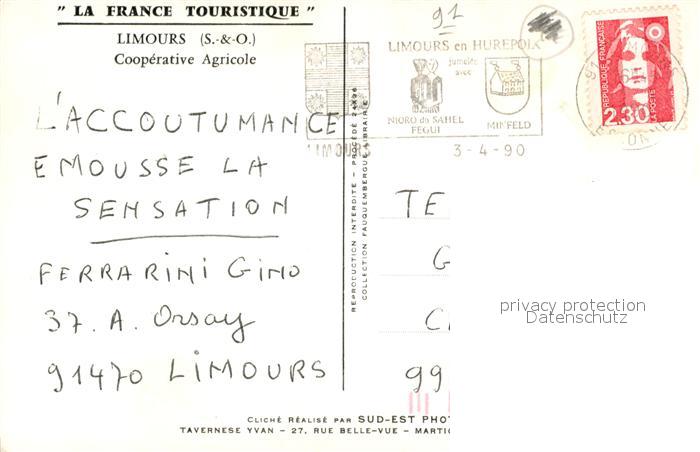 " LA FRANCE TOURISTIQUE "
LIMOURS (S.-&-O.)
Coopérative Agricole
L'ACCOUTUMANCE
EMOUSSE LA
SENSATION
FERRARINI GINO
37. A. Orsay
91470 LIMOURS
REPRODUCTION INTERDITE - PROCÉDÉ
COLLECTION FAUQUEMBERGUE LIBRAIRIE
91
LIMOURS en HUREPOIX
jumelée
avec
NIORO du SAHEL
FEGUI
MINFELD
LIMOURS
3-4-90
REPUBLIQUE FRANÇAISE
2,30
LA POSTE
91
ESSONNE
TE
G
C
99
privacy protection
Datenschutz
CLICHÉ RÉALISÉ PAR SUD-EST PHOT
TAVERNESE YVAN - 27, RUE BELLE-VUE - MARTIG